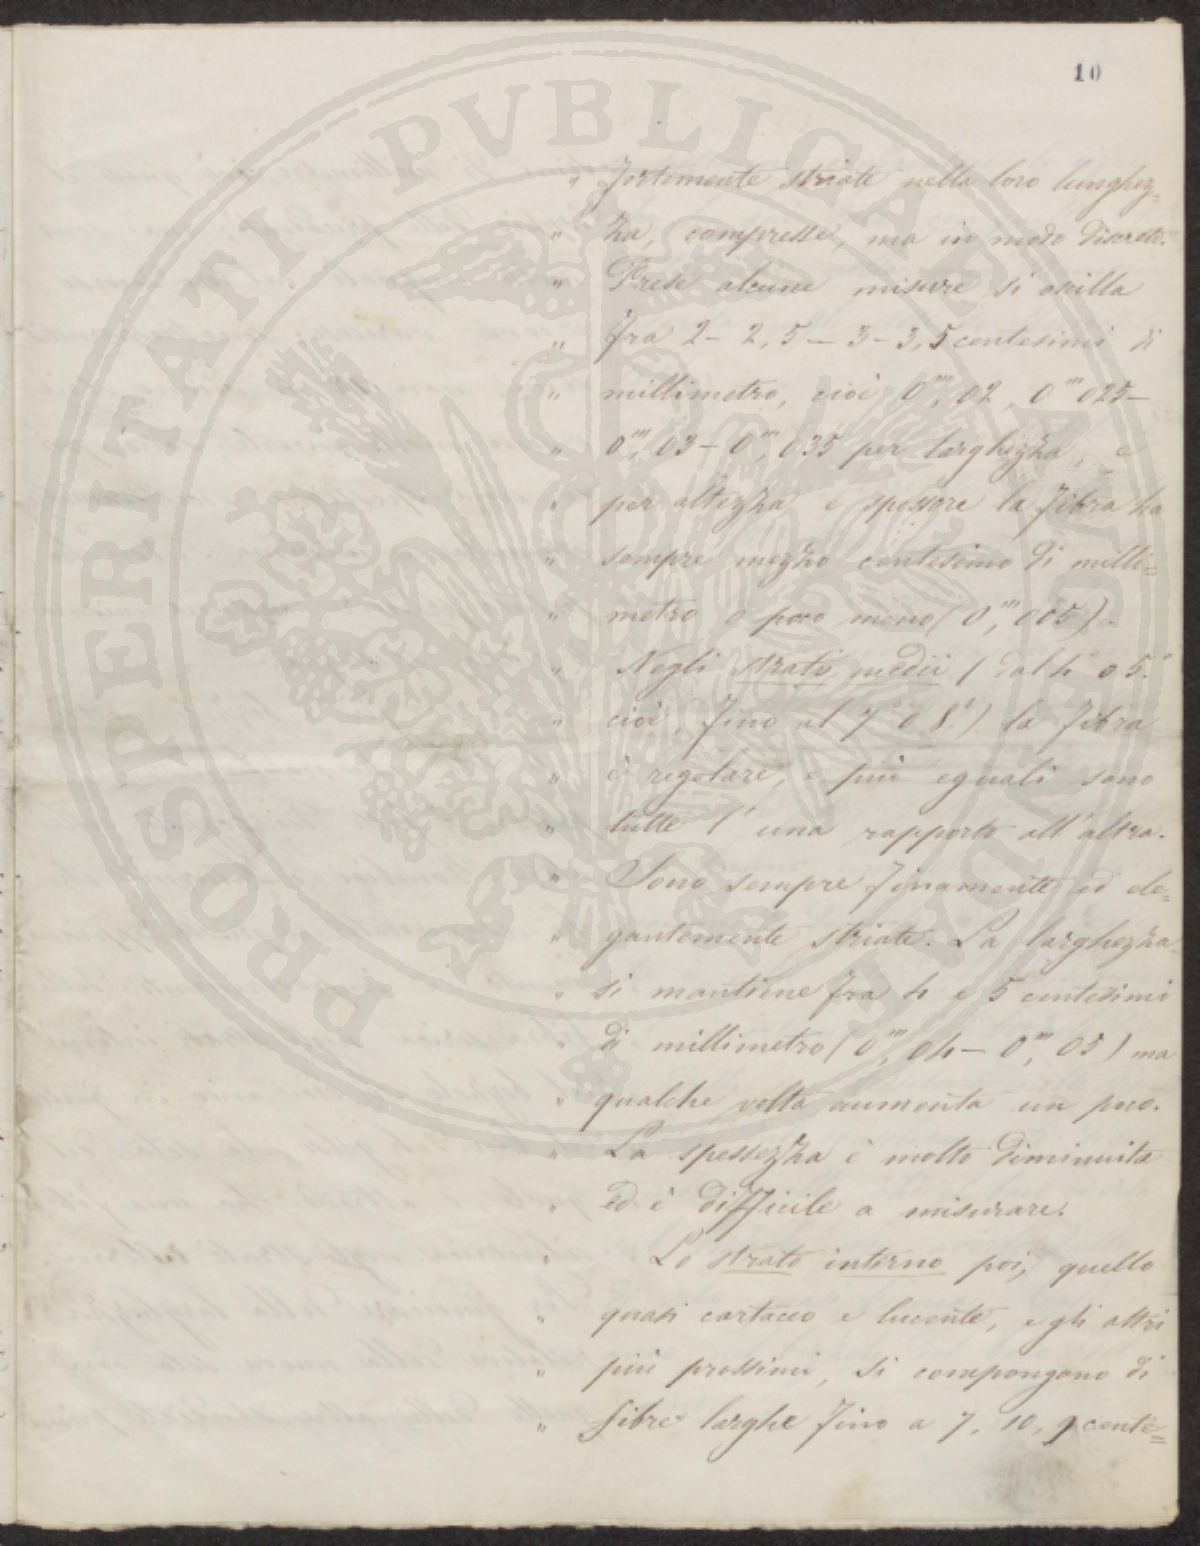 10
PROSPERITATI PVBLICAE AVGENDAE
" fortemente striate nella loro lunghez=
" za, compresse, ma in modo discreto.
" Prese alcune misure si oscilla
" fra 2 - 2,5 - 3 - 3,5 centesimi di
" millimetro, cioè 0''',02, 0'''025 -
" 0''',03 - 0''',035 per larghezza, e
" per altezza e spessore la fibra ha
" sempre mezzo centesimo di milli=
" metro o poco meno (0''',005).
" Negli strati medii (dal 4° o 5.°
" cioè, fino al 7° o 8.°) la fibra
" è regolare, e più eguali sono
" tutte l'una rapporto all'altra.
" Sono sempre finamente ed ele=
" gantemente striate. La larghezza
" si mantiene fra 4 e 5 centesimi
" di millimetro (0''',04 - 0''',05) ma
" qualche volta aumenta un poco.
" La spessezza è molto diminuita
" ed è difficile a misurare.
" Lo strato interno poi, quello
" quasi cartaceo e lucente, e gli altri
" più prossimi, si compongono di
" fibre larghe fino a 7, 10, 9 cente=